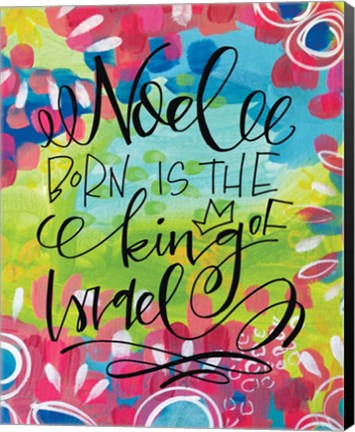 Noel
BORN IS THE
king OF
Israel